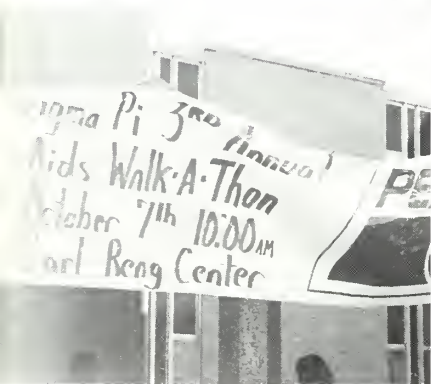 igma Pi 3RD Annual
Aids Walk-A-Thon
october 7th 10:00 AM
arl Reng Center
PE